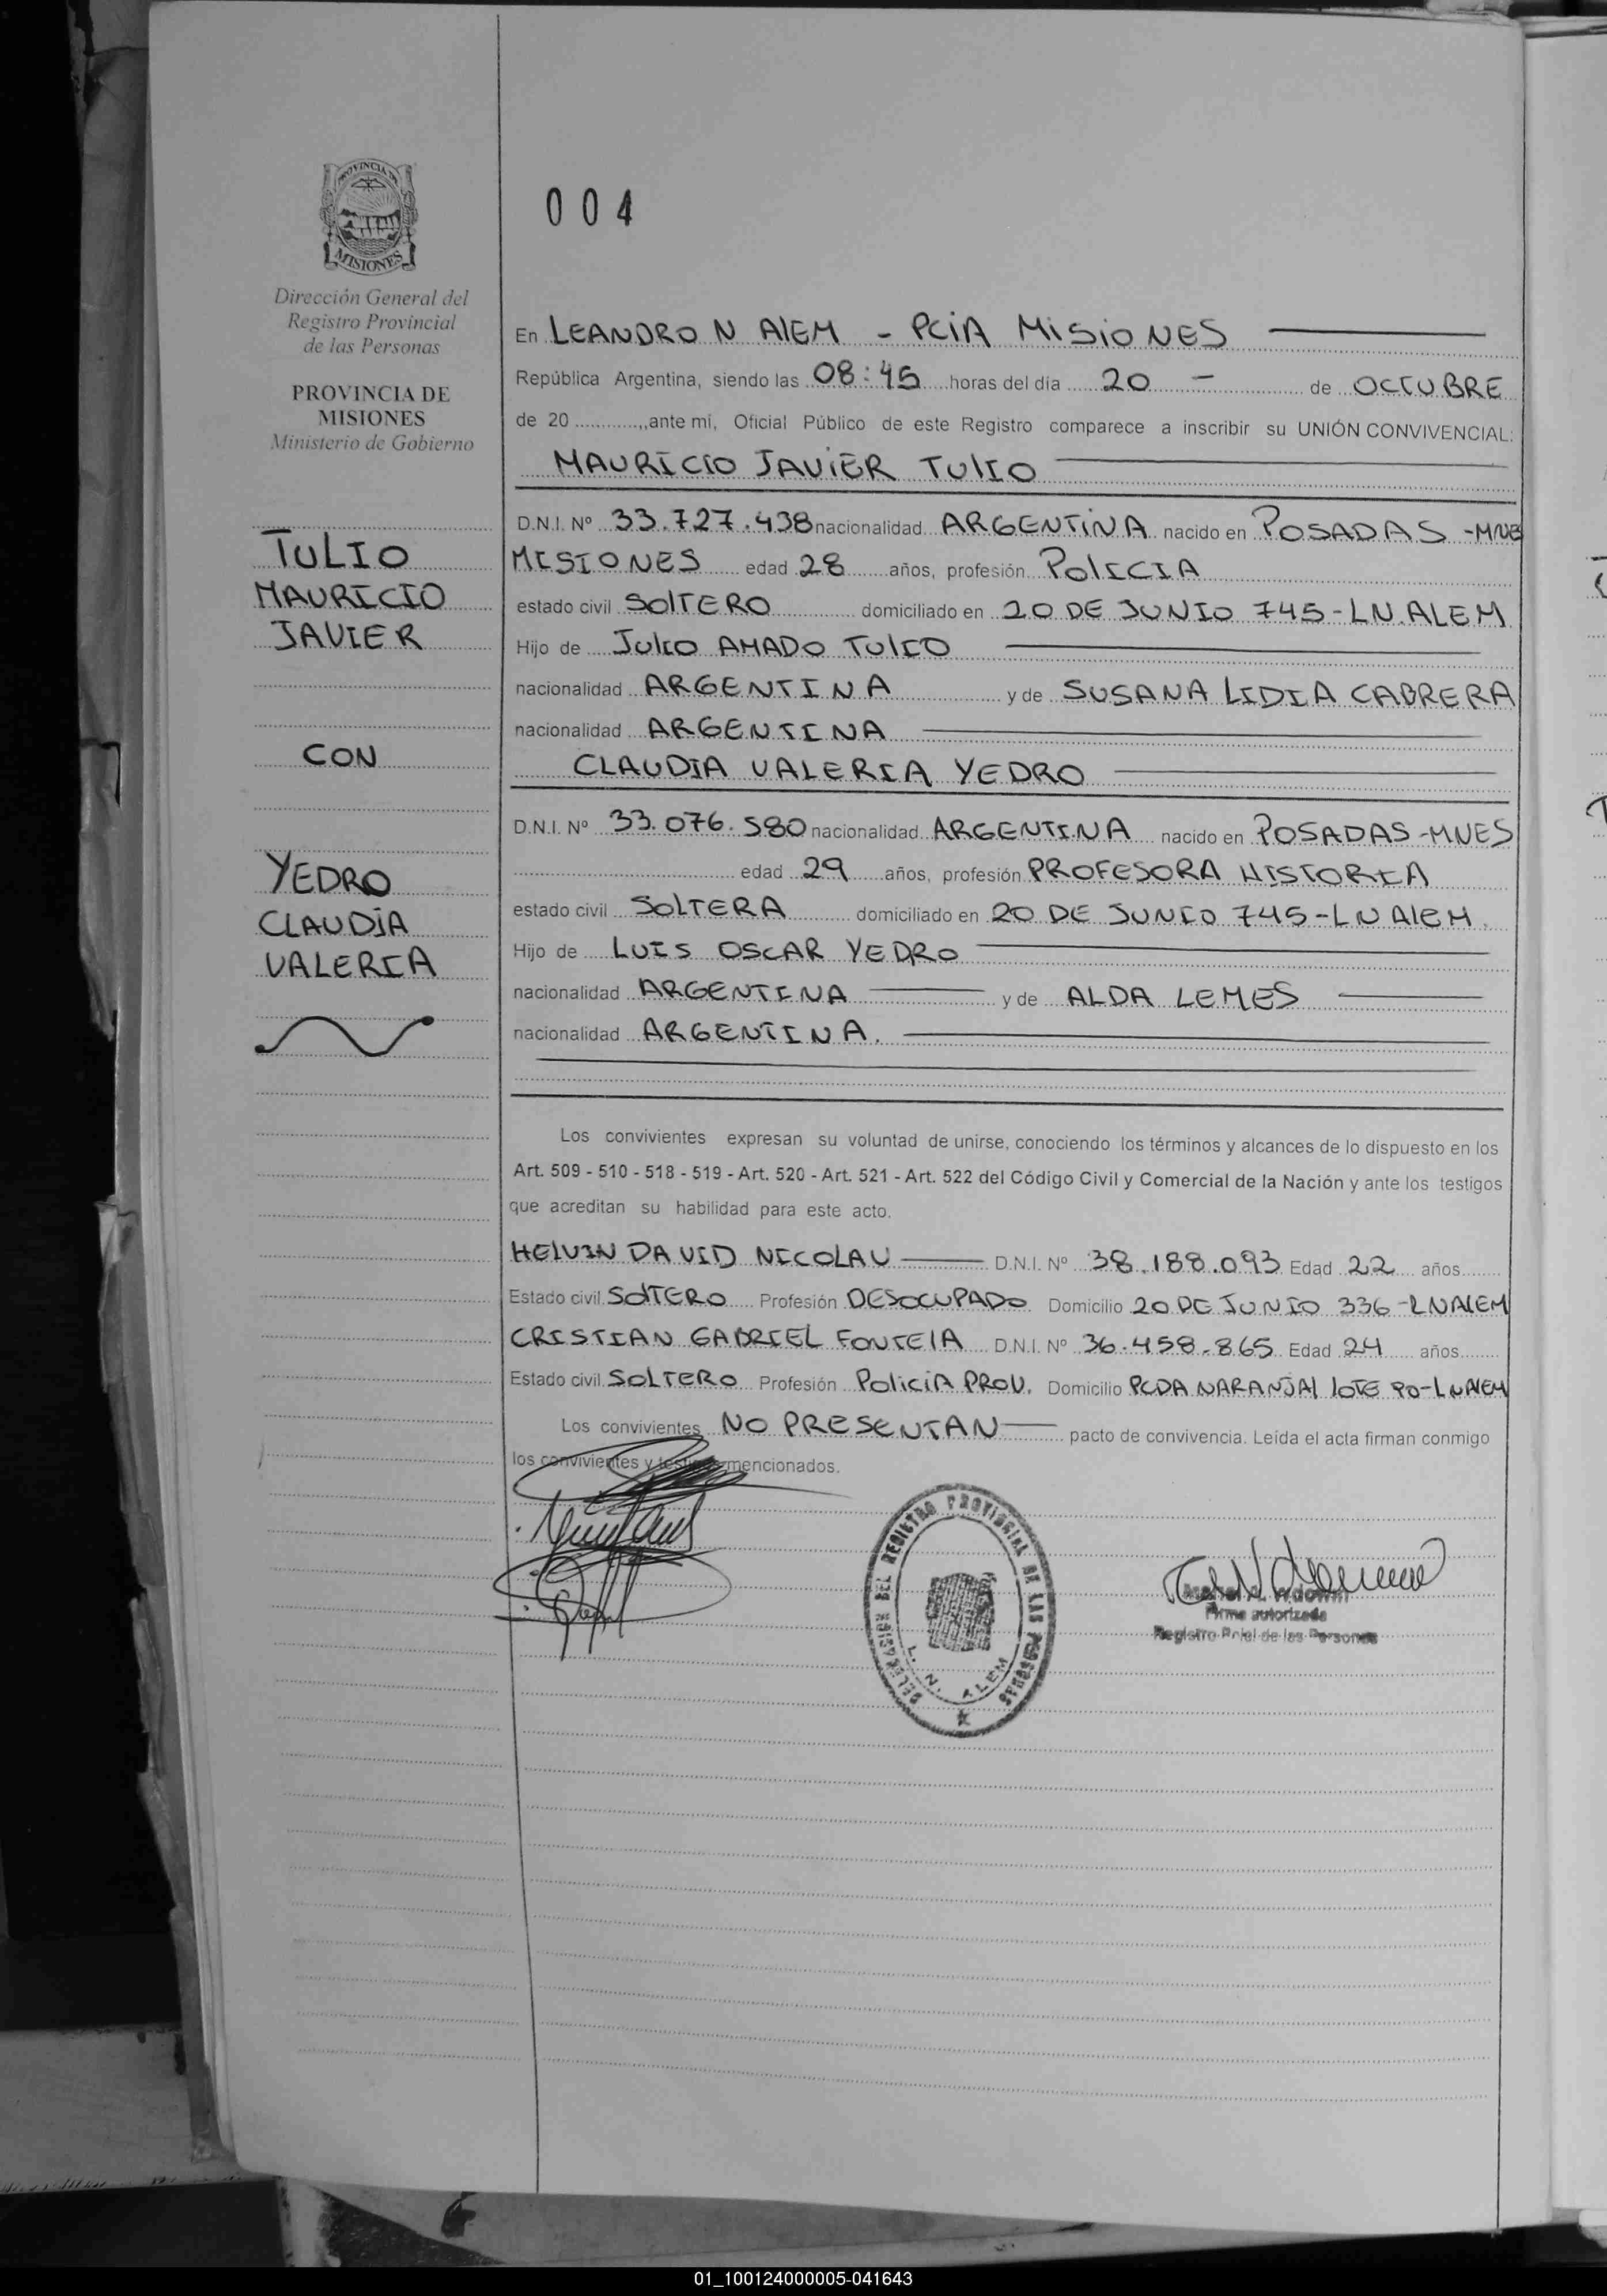 PROVINCIA DE
MISIONES
Dirección General del
Registro Provincial
de las Personas
PROVINCIA DE
MISIONES
Ministerio de Gobierno
TULIO
MAURICIO
JAVIER
CON
YEDRO
CLAUDIA
VALERIA
004
En LEANDRO N ALEM - PCIA MISIONES
República Argentina, siendo las 08:45 horas del día 20 - de OCTUBRE
de 20 ............,,ante mí, Oficial Público de este Registro comparece a inscribir su UNIÓN CONVIVENCIAL:
MAURICIO JAVIER TULIO
D.N.I. Nº 33.727.438 nacionalidad ARGENTINA nacido en POSADAS -
MISIONES edad 28 años, profesión POLICIA
estado civil SOLTERO domiciliado en 20 DE JUNIO 745-LN.ALEM
Hijo de JULIO AMADO TULIO
nacionalidad ARGENTINA y de SUSANA LIDIA CABRERA
nacionalidad ARGENTINA
CLAUDIA VALERIA YEDRO
D.N.I. Nº 33.076.580 nacionalidad ARGENTINA nacido en POSADAS-MNES
edad 29 años, profesión PROFESORA HISTORIA
estado civil SOLTERA domiciliado en 20 DE JUNIO 745-LN ALEM.
Hijo de LUIS OSCAR YEDRO
nacionalidad ARGENTINA y de ALDA LEMES
nacionalidad ARGENTINA.
Los convivientes expresan su voluntad de unirse, conociendo los términos y alcances de lo dispuesto en los
Art. 509 - 510 - 518 - 519 - Art. 520 - Art. 521 - Art. 522 del Código Civil y Comercial de la Nación y ante los testigos
que acreditan su habilidad para este acto.
HELVIN DAVID NICOLAU D.N.I. Nº 38.188.093 Edad 22 años
Estado civil SOLTERO Profesión DESOCUPADO Domicilio 20 DE JUNIO 336-LNALEM
CRISTIAN GABRIEL FONTELA D.N.I. Nº 36.458.865 Edad 24 años
Estado civil SOLTERO Profesión POLICIA PROV. Domicilio PCDA NARANJAL LOTE 90-LNALEM
Los convivientes NO PRESENTAN pacto de convivencia. Leída el acta firman conmigo
los convivientes y testigos mencionados.
DELEGACION DEL REGISTRO PROVINCIAL DE LAS PERSONAS
L. N. ALEM
Firma autorizada
Registro Pcial de las Personas
01_100124000005-041643